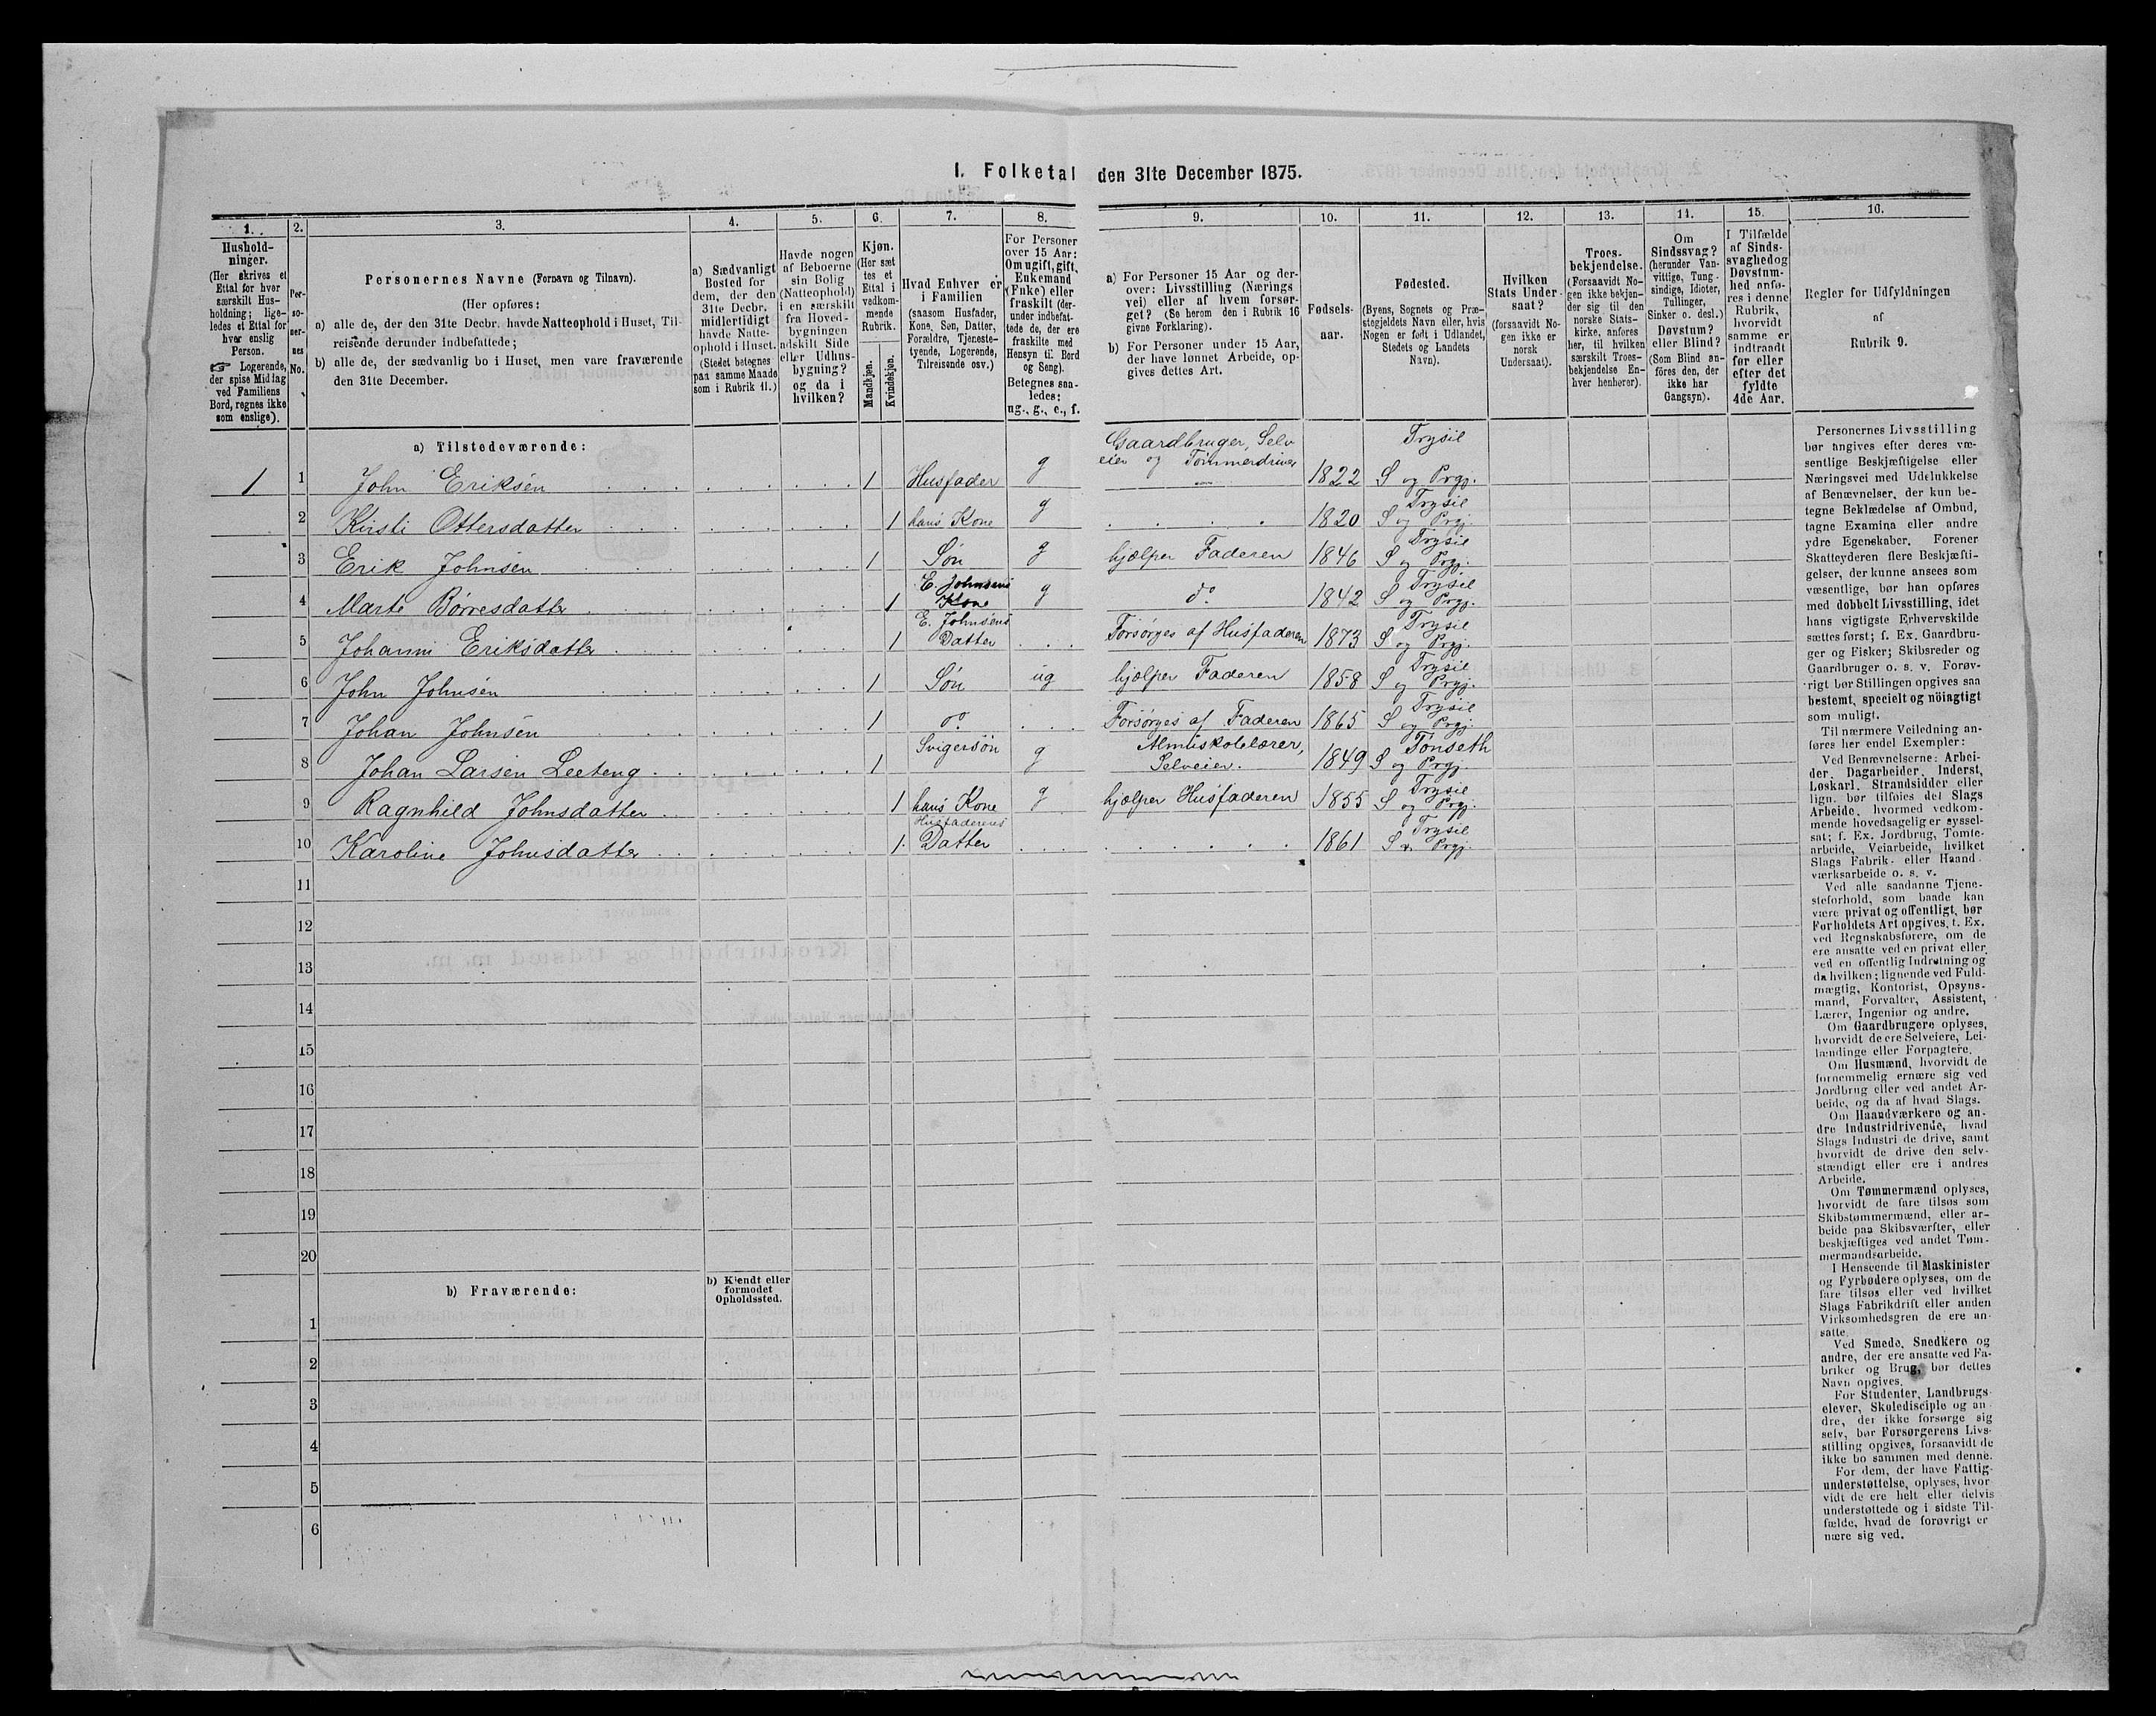 I. Folketal den 31te December 1875.
1.
Hushold-
ninger.
(Her skrives et
Ettal for hver
særskilt Hus-
holdning; lige-
ledes et Ettal for
hver enslig
Person.
☞ Logerende,
der spise Middag
ved Familiens
Bord, regnes ikke
som enslige).
2.
Per-
so-
ner-
nes
No.
3.
Personernes Navne (Fornavn og Tilnavn).
(Her opføres:
a) alle de, der den 31te Decbr. havde Natteophold i Huset, Til-
reisende derunder indbefattede;
b) alle de, der sædvanlig bo i Huset, men vare fraværende
den 31te December.
4.
a) Sædvanligt
Bosted for
dem, der den
31te Decbr.
midlertidigt
havde Natte-
ophold i Huset.
(Stedet betegnes
paa samme Maade
som i Rubrik 11.)
5.
Havde nogen
af Beboerne
sin Bolig
(Natteophold)
i en særskilt
fra Hoved-
bygningen
adskilt Side
eller Udhus-
bygning?
og da i
hvilken?
6.
Kjøn.
(Her sæt
tes et
Ettal i
vedkom-
mende
Rubrik.
Mandkjøn.
Kvindekjøn.
7.
Hvad Enhver er
i Familien
(saasom Husfader,
Kone, Søn, Datter,
Forældre, Tjeneste-
tyende, Logerende,
Tilreisende osv.)
8.
For Personer
over 15 Aar:
Om ugift, gift,
Enkemand
(Enke) eller
fraskilt (der-
under indbefat-
tede de, der ere
fraskilte med
Hensyn til Bord
og Seng).
Betegnes saa-
ledes:
ug., g., e., f.
9.
a) For Personer 15 Aar og der-
over: Livsstilling (Nærings
vei) eller af hvem forsør-
get? (Se herom den i Rubrik 16
givne Forklaring).
b) For Personer under 15 Aar,
der have lønnet Arbeide, op-
gives dettes Art.
10.
Fødsels-
aar.
11.
Fødested.
(Byens, Sognets og Præ-
stegjeldets Navn eller, hvis
Nogen er født i Udlandet,
Stedets og Landets
Navn).
12.
Hvilken
Stats Under-
saat?
(forsaavidt No-
gen ikke er
norsk
Undersaat).
13.
Troes-
bekjendelse.
(Forsaavidt No-
gen ikke bekjen-
der sig til den
norske Stats-
kirke, anføres
her, til hvilken
særskilt Troes-
bekjendelse En-
hver henhører).
14.
Om
Sindssvag?
(herunder Van-
vittige, Tung-
sindige, Idioter,
Tullinger,
Sinker o. desl.)
Døvstum?
eller Blind?
(Som Blind an-
føres den, der
ikke har
Gangsyn).
15.
I Tilfælde
af Sinds-
svaghed og
Døvstum-
hed anfø-
res i denne
Rubrik,
hvorvidt
samme er
indtraadt
før eller
efter det
fyldte
4de Aar.
16.
Regler for Udfyldningen
af
Rubrik 9.
a) Tilstedeværende:
Gaardbruger, Selv
eier og Tømmerdriver
Trysil
1 1 John Eriksen 1 Husfader g 1822 S og Prgj.
Trysil
2 Kirsti Ottersdatter 1 hans Kone g 1820 S og Prgj.
Trysil
3 Erik Johnsen 1 Søn g hjælper Faderen 1846 S og Prgj.
E. Johnsens Trysil
4 Marte Børresdatter 1 Kone g do. 1842 S og Prgj.
E. Johnsens Trysil
5 Johanni Eriksdatter 1 Datter Forsørges af Husfaderen 1873 S og Prgj.
Trysil
6 John Johnsen 1 Søn ug hjælper Faderen 1858 S og Prgj.
Trysil
7 Johan Johnsen 1 do Forsørges af Faderen 1865 S og Prgj.
Svigersøn Almuskolelærer, Tønseth
8 Johan Larsen Leeteng 1 g Selveier. 1849 S og Prgj.
Trysil
9 Ragnhild Johnsdatter 1 hans Kone g hjælper Husfaderen 1855 S og Prgj.
Husfaderens Trysil
10 Karoline Johnsdatter 1 Datter 1861 S og Prgj.
11
12
13
14
15
16
17
18
19
20
b) Fraværende:
b) Kjendt eller
formodet
Opholdssted.
1
2
3
4
5
6
Personernes Livsstilling
bør angives efter deres væ-
sentlige Beskjæftigelse eller
Næringsvei med Udelukkelse
af Benævnelser, der kun be-
tegne Beklædelse af Ombud,
tagne Examina eller andre
ydre Egenskaber. Forener
Skatteyderen flere Beskjæfti-
gelser, der kunne ansees som
væsentlige, bør han opføres
med dobbelt Livsstilling, idet
hans vigtigste Erhvervskilde
sættes først; f. Ex. Gaardbru-
ger og Fisker; Skibsreder og
Gaardbruger o. s. v. Forøv-
rigt bør Stillingen opgives saa
bestemt, specielt og nöiagtigt
som muligt.
Til nærmere Veiledning an-
føres her endel Exempler:
Ved Benævnelserne: Arbei-
der, Dagarbeider, Inderst,
Løskarl, Strandsidder eller
lign. bør tilføies det Slags
Arbeide, hvormed vedkom-
mende hovedsagelig er syssel-
sat; f. Ex. Jordbrug, Tomte-
arbeide, Veiarbeide, hvilket
Slags Fabrik- eller Haand-
værksarbeide o. s. v.
Ved alle saadanne Tjene-
steforhold, som baade kan
være privat og offentligt, bør
Forholdets Art opgives, t. Ex.
ved Regnskabsførere, om de
ere ansatte ved en privat eller
ved en offentlig Indretning og
da hvilken; lignende ved Fuld-
mægtig, Kontorist, Opsyns-
mand, Forvalter, Assistent,
Lærer, Ingeniør og andre.
Om Gaardbrugere oplyses,
hvorvidt de ere Selveiere, Lei-
lændinge eller Forpagtere.
Om Husmænd, hvorvidt de
fornemmelig ernære sig ved
Jordbrug eller ved andet Ar-
beide, og da af hvad Slags.
Om Haandværkere og an-
dre Industridrivende, hvad
Slags Industri de drive, samt
hvorvidt de drive den selv-
stændigt eller ere i andres
Arbeide.
Om Tømmermænd oplyses,
hvorvidt de fare tilsøs som
Skibstømmermænd, eller ar-
beide paa Skibsværfter, eller
beskjæftiges ved andet Tøm-
mermandsarbeide.
I Henseende til Maskinister
og Fyrbødere oplyses, om de
fare tilsøs eller ved hvilket
Slags Fabrikdrift eller anden
Virksomhedsgren de ere an-
satte.
Ved Smede, Snedkere og
andre, der ere ansatte ved Fa-
briker og Brug, bør dettes
Navn opgives.
For Studenter, Landbrugs-
elever, Skoledisciple og an-
dre, der ikke forsørge sig
selv, bør Forsørgerens Livs-
stilling opgives, forsaavidt de
ikke bo sammen med denne.
For dem, der have Fattig-
understøttelse, oplyses, hvor-
vidt de ere helt eller delvis
understøttede og i sidste Til-
fælde, hvad de forøvrigt er-
nære sig ved.